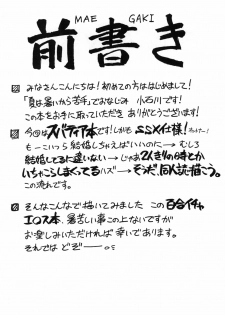 MAE GAKI
前書き
みなさんこんにちは!初めての方ははじめまして!
「夏は暑いから苦手」でおなじみ 小石川です!
この本をお手に取っていただき ありがとうございます!
今回はスパフィア本です!しかも SSX仕様!
もーこいつら結婚しちゃえばいいのに→むしろ
結婚してるに違いない→じゃあ2人きりの時とか
いちゃこらしまくってるハズ→そうだ、同人誌描こう。
この流れです。
そんなこんなで描いてみました この百合イチャ
エロス本、暑苦しい事この上ないですが
お楽しみいただければ 幸いであります。
それでは どぞー